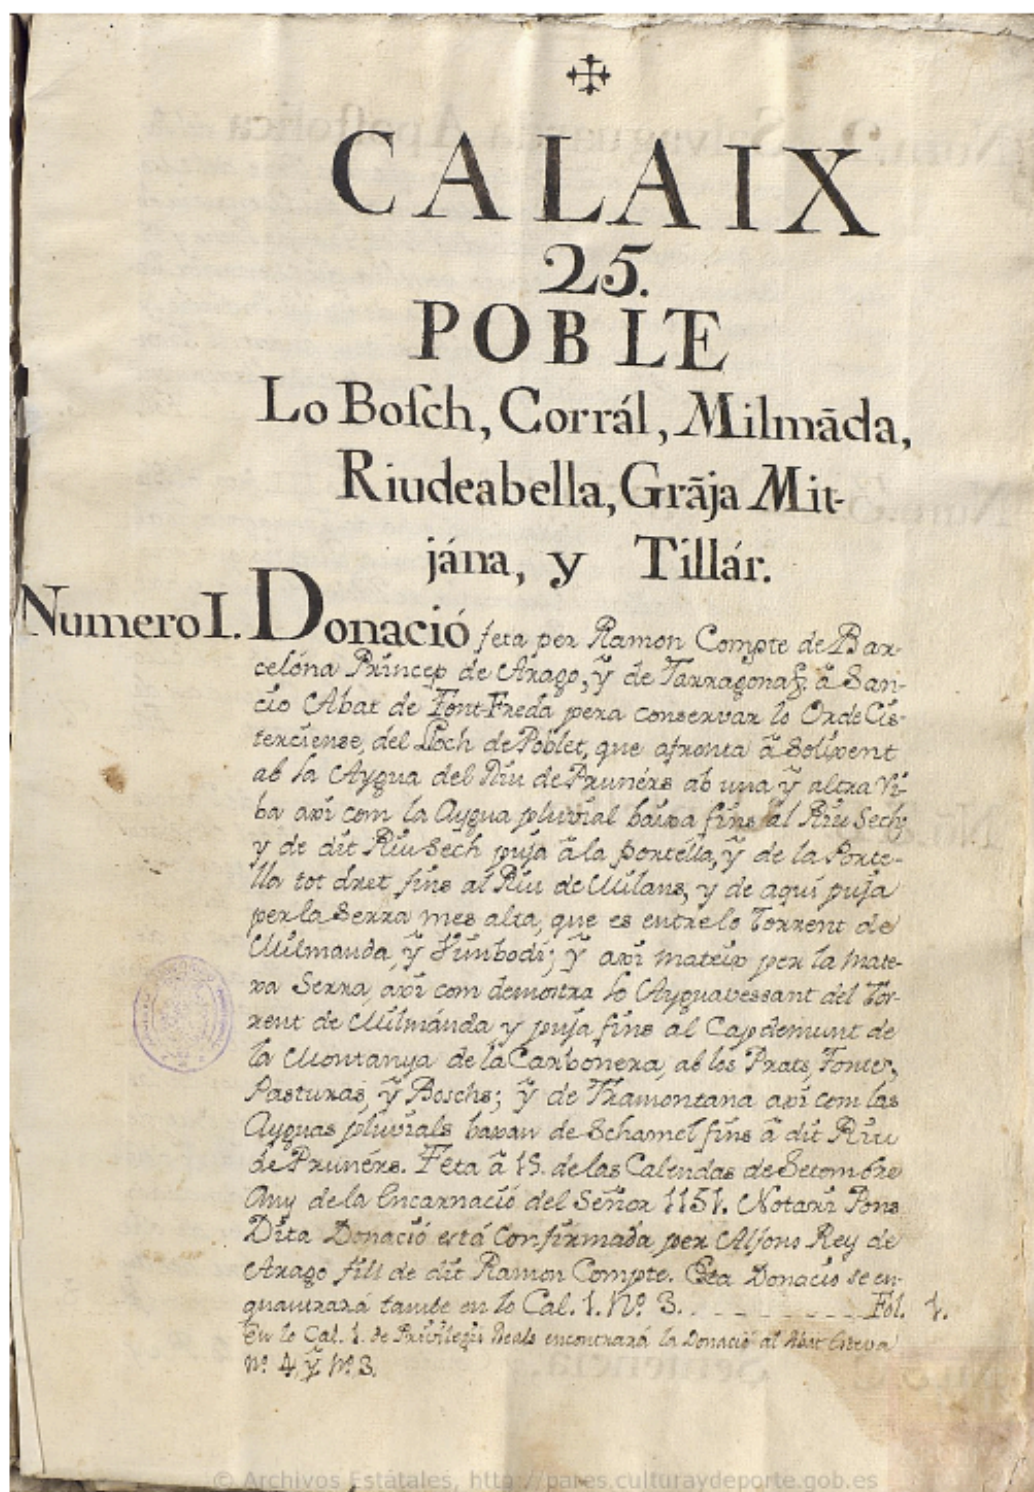 CALAIX
25.
POBLE
Lo Boſch, Corrál, Milmāda,
Riudeabella, Grāja Mit-
jána, y Tillár.
Numero I. Donació feta per Ramon Compte de Bar-
celóna Princep de Arago, y de Tarragona &. â San-
cio Abat de Font-Freda pera conservar lo Orde Cis-
terciense, del Lloch de Poblet, que afronta â Solixent
ab la Aygua del Riu de Prunérs ab una y altra Ri-
ba axi com la Aygua pluvial baixa fins al Riu Sech,
y de dit Riu Sech puja â la portella, y de la Porte-
lla tot dret fins al Riu de Milans, y de aqui puja
per la Serra mes alta, que es entre lo Torrent de
Milmanda, y Vimbodi; y axi mateix per la mate-
xa Serra, axi com demostra lo Ayguavessant del Tor-
rent de Milmánda y puja fins al Capdemunt de
la Montanya de la Carbonera, ab los Prats, Fonts,
Pasturas, y Boschs; y de Tramontana axi com las
Ayguas pluvials baxan de Schamet fins â dit Riu
de Prunérs. Feta â 15. de las Calendas de Setembre
Any de la Encarnació del Señor 1151. Notari Pons
Dita Donació está confirmada per Alfons Rey de
Arago fill de dit Ramon Compte. Esta Donació se en-
quantrará també en lo Cal. 1. Nº 3. _ _ _ _ _ _ Fol. 1.
En lo Cal. 1. de Privilegis Reals encontrará la Donació al Abat Esteva
nº 4, y Nº 3.
© Archivos Estátales, http://pares.culturaydeporte.gob.es